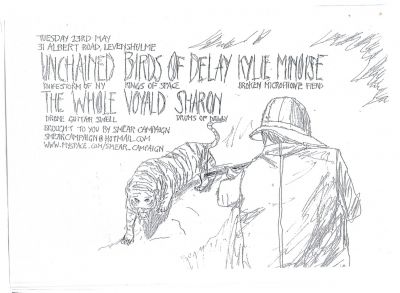 TUESDAY 23RD MAY
31 ALBERT ROAD, LEVENSHULME
UNCHAINED BIRDS OF DELAY KYLIE MINOISE
OF NY OF SPACE BROKEN MICROPHONE FIEND
THE WHOLE VOYALD SHARON
DRONE GUITAR SWELL DRUMS OF
BROUGHT TO YOU BY SMEAR CAMPAIGN
SMEARCAMPAIGN@HOTMAIL.COM
WWW.MYSPACE.COM/SMEAR_CAMPAIGN